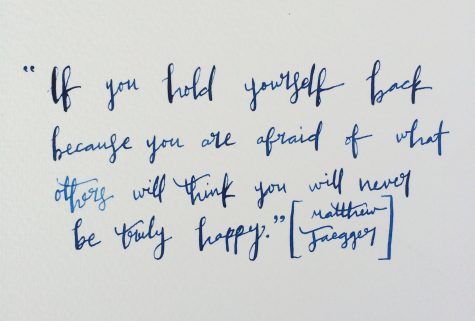 "If you hold yourself back
because you are afraid of what
others will think you will never
be truly happy." [matthew
Jaegger]